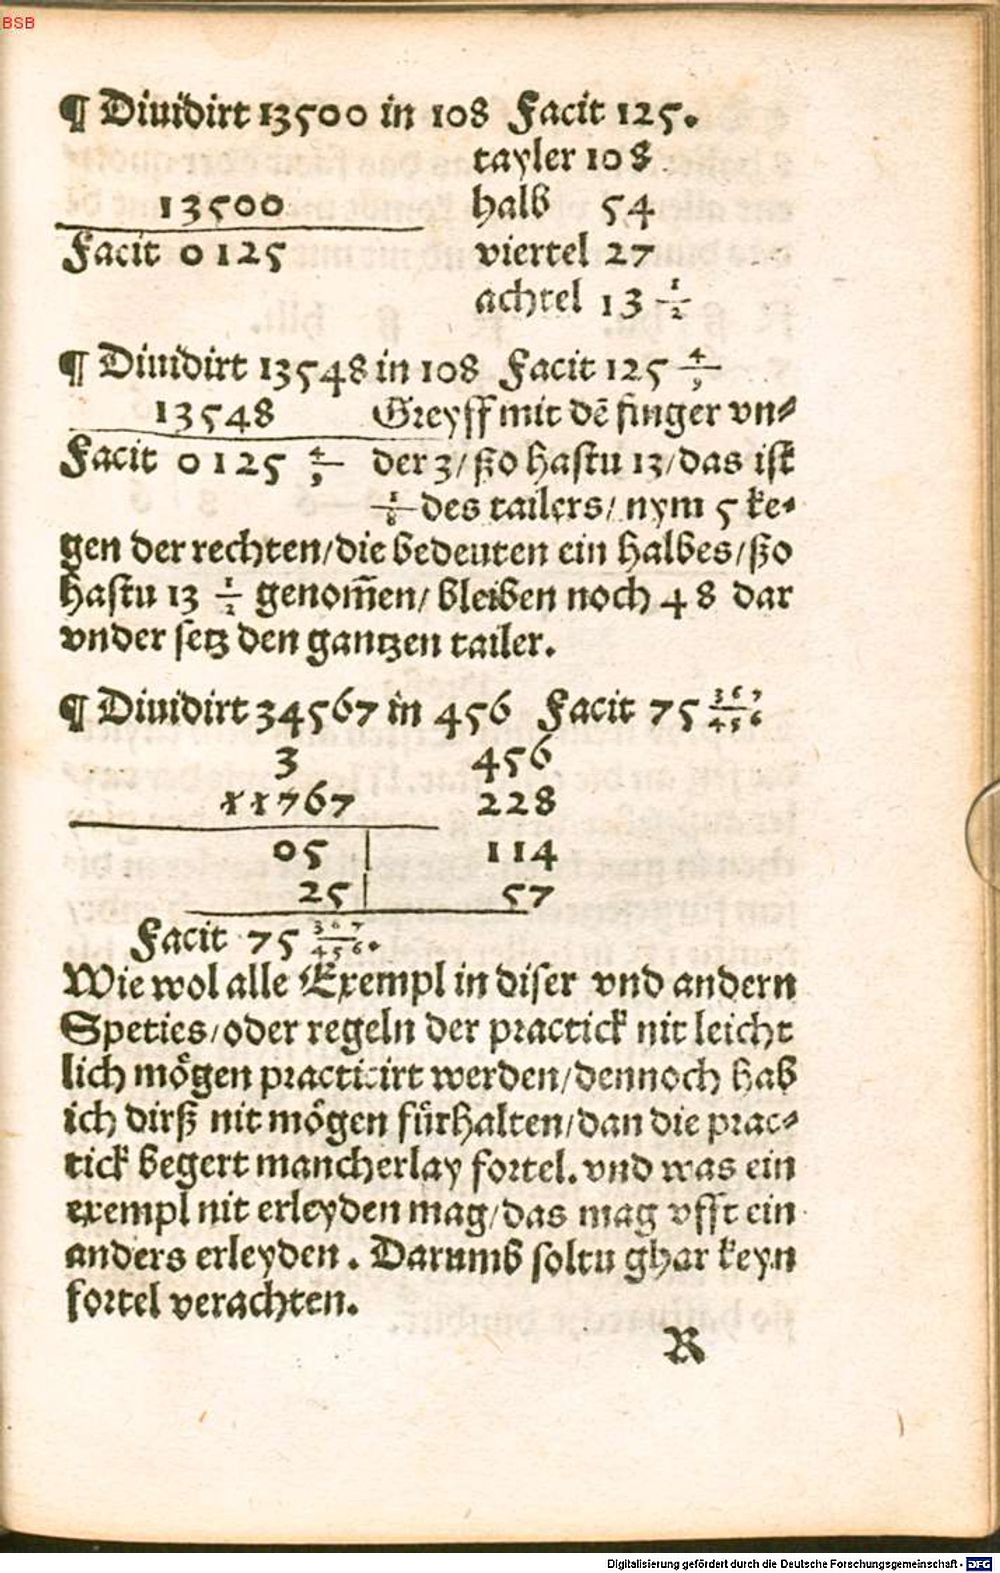 BSB
¶ Diuidirt 13500 in 108 Facit 125.
tayler 108
13500 halb 54
Facit 0125 viertel 27
achtel 13 1/2
¶ Diuidirt 13548 in 108 Facit 125 4/9
13548 Greyff mit dē finger vn⸗
Facit 0125 4/9 der 3/ ßo hastu 13/ das ist
1/8 des tailers/ nym 5 ke⸗
gen der rechten/ die bedeuten ein halbes/ ßo
hastu 13 1/2 genom̄en/ bleiben noch 48 dar
vnder setz den gantzen tailer.
¶ Diuidirt 34567 in 456 Facit 75 367/456
3 456
xx767 228
05 | 114
25 | 57
Facit 75 367/456.
Wie wol alle Exempl in diser vnd andern
Speties/ oder regeln der practick nit leicht
lich mögen practicirt werden/ dennoch hab
ich dirß nit mögen fürhalten/ dan die prac⸗
tick begert mancherlay fortel. vnd was ein
exempl nit erleyden mag/ das mag vfft ein
anders erleyden. Darumb soltu ghar keyn
fortel verachten.
R
Digitalisierung gefördert durch die Deutsche Forschungsgemeinschaft - DFG